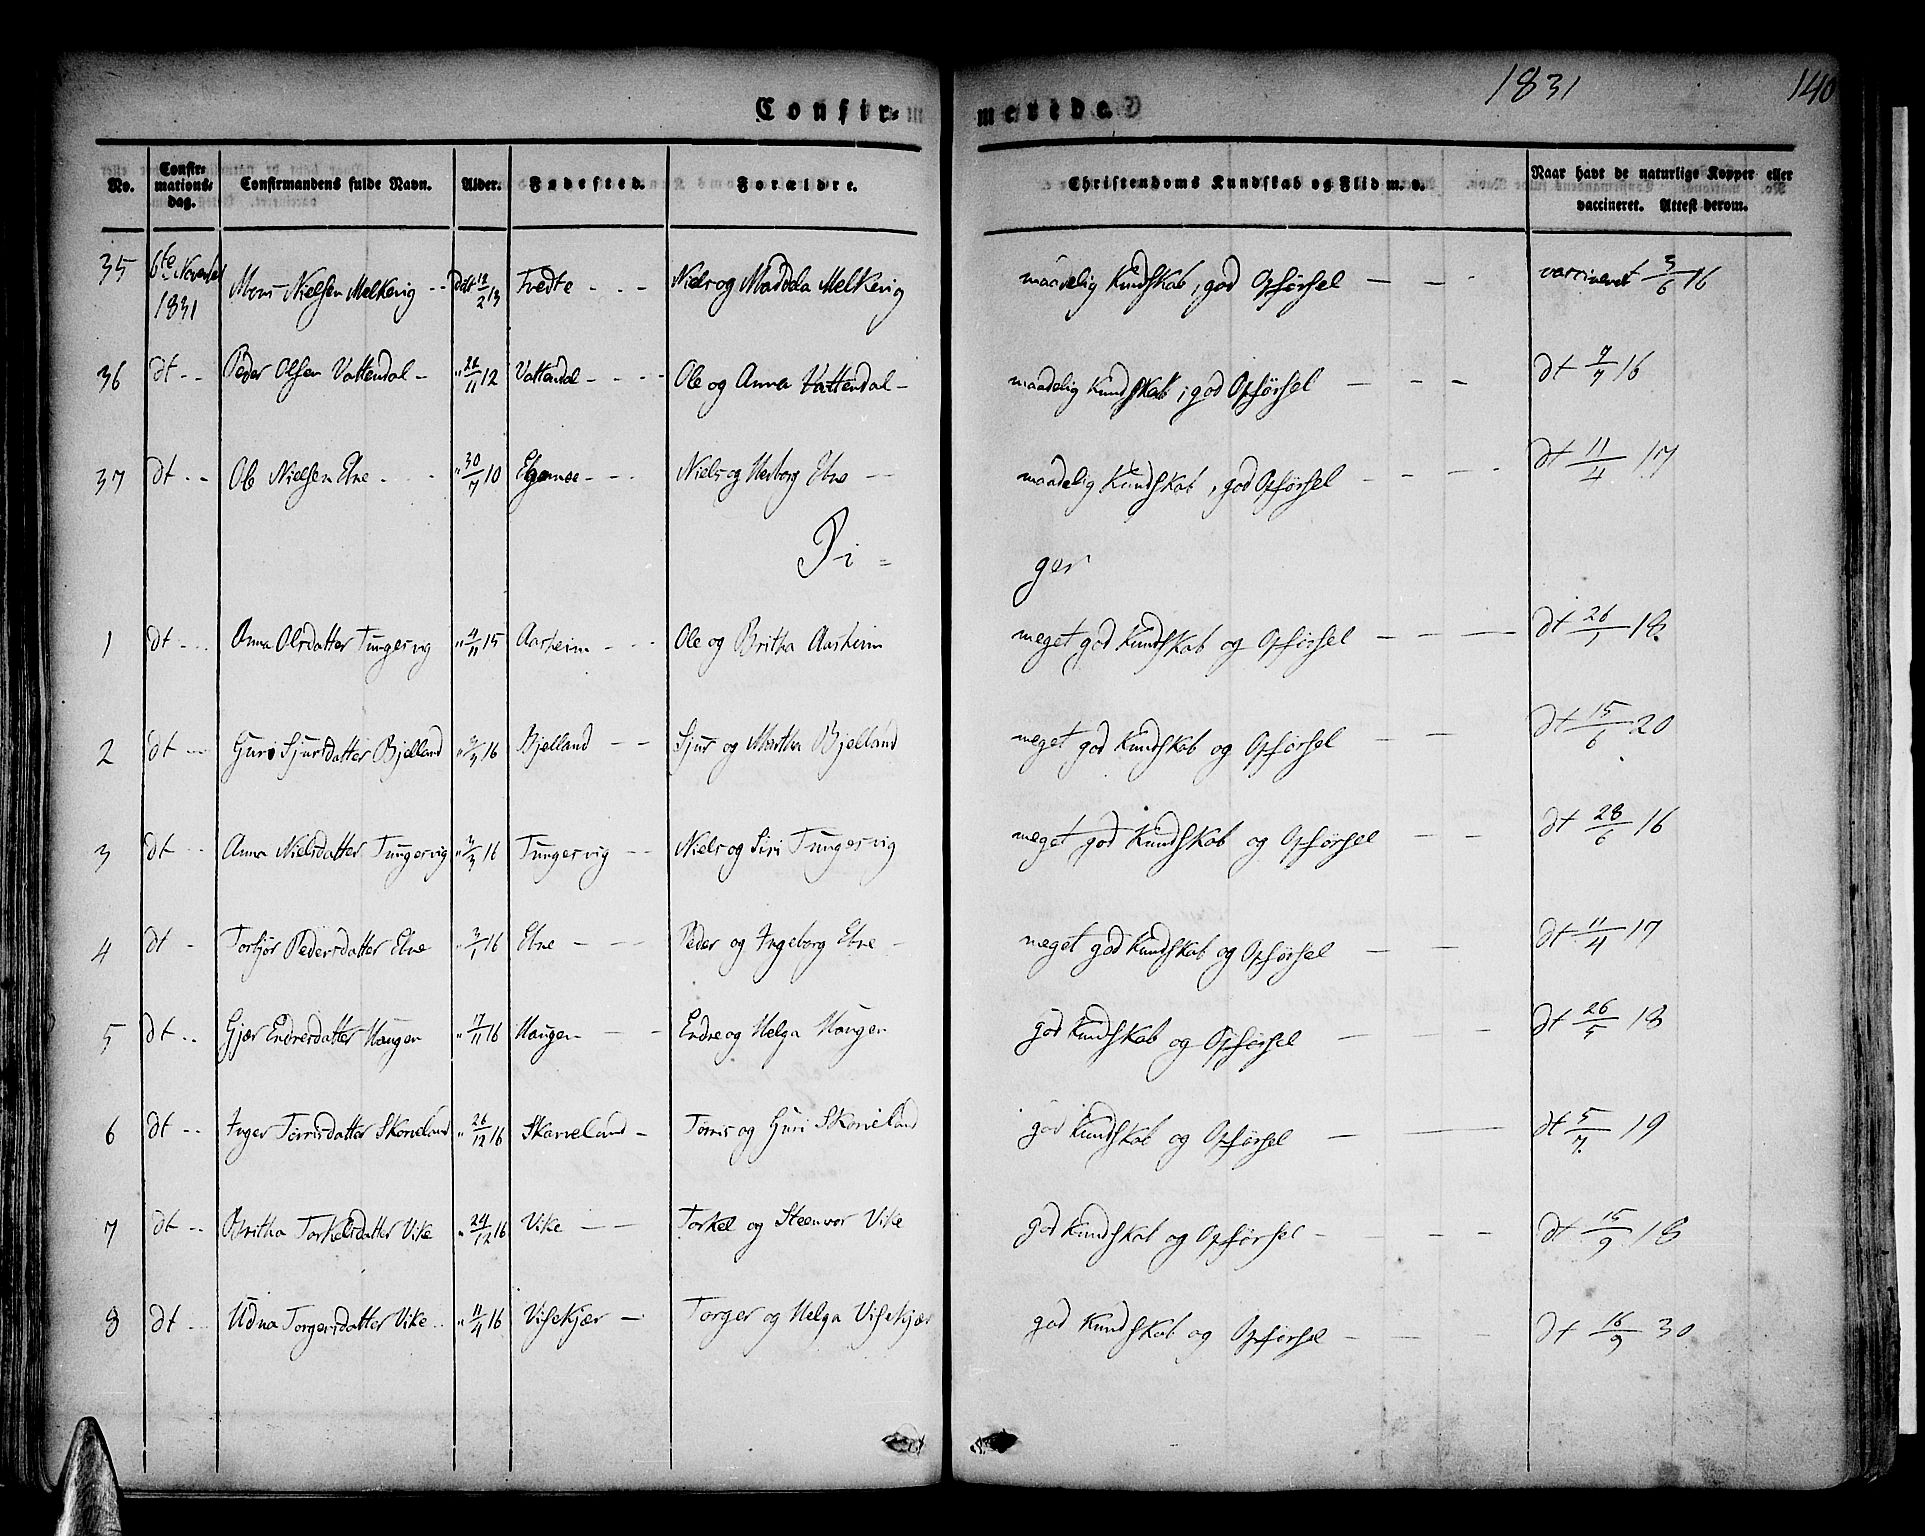 1831
140
Confir- merede.
No. Confirmations-dag. Confirmandens fulde Navn. Alder. Fødested. Forældre. Christendoms Kundskab og Flid m. v. Naar havt de naturlige Kopper eller vaccineret. Attest derom.
35 6te November 1831 Mons Nielsen Melkevig -- 2 13 Tvedte - - - Niels og Madda Melkevig maadelig Kundskab, god Opførsel - - - vaccineret 3/6 16
36 dt -- Peder Olsen Vattendal - " /11 12 Vattendal - - - - Ole og Anna Vattendal - maadelig Kundskab, god Opførsel - - - dt 7/7 16
37 dt -- Ole Nielsen Etne - - - " 30/7 10 - - - Niels og Herborg Etne -- maadelig Kundskab, god Opførsel - - - - dt 11/4 17
Pi = ger
1 dt -- Anna Olsdatter Tungesvig " 4/11 15 Aarheim - - - Ole og Britha Aarheim meget god Kundskab og Opførsel - - - dt 26/1 18
2 dt -- Guri Sjursdatter Bjelland " /3 16 Bjelland - - Sjur og Martha Bjelland meget god Kundskab og Opførsel - - dt 15/6 20
3 dt -- Anna Nielsdatter Tungesvig " /3 16 Tungesvig -- Niels og Siri Tungesvig meget god Kundskab og Opførsel - - dt 28/6 16
4 dt - Torbjør Pedersdatter Etne " 3/1 16 Etne - - - Peder og Ingeborg Etne - meget god Kundskab og Opførsel - - dt 11/4 17
5 dt -- Gjær Endresdatter Haugen " 17/11 16 Haugen - - - Endre og Helga Haugen god Kundskab og Opførsel - - - dt 26/5 18
6 dt -- Inger Tørrisdatter Skorveland " 26/12 16 Skarveland - Tørris og Guri Skarveland god Kundskab og Opførsel - - dt 5/7 19
7 dt -- Britha Torkelsdatter Vike " 24/12 16 Vike - - Torkel og Steenvor Vike god Kundskab og Opførsel - - - - dt 15/9 18
8 dt -- Udna Torgersdatter Vike -- " 11/4 16 Visekjær - Torger og Helga Visekjær god Kundskab og Opførsel - - - - dt 16/9 30